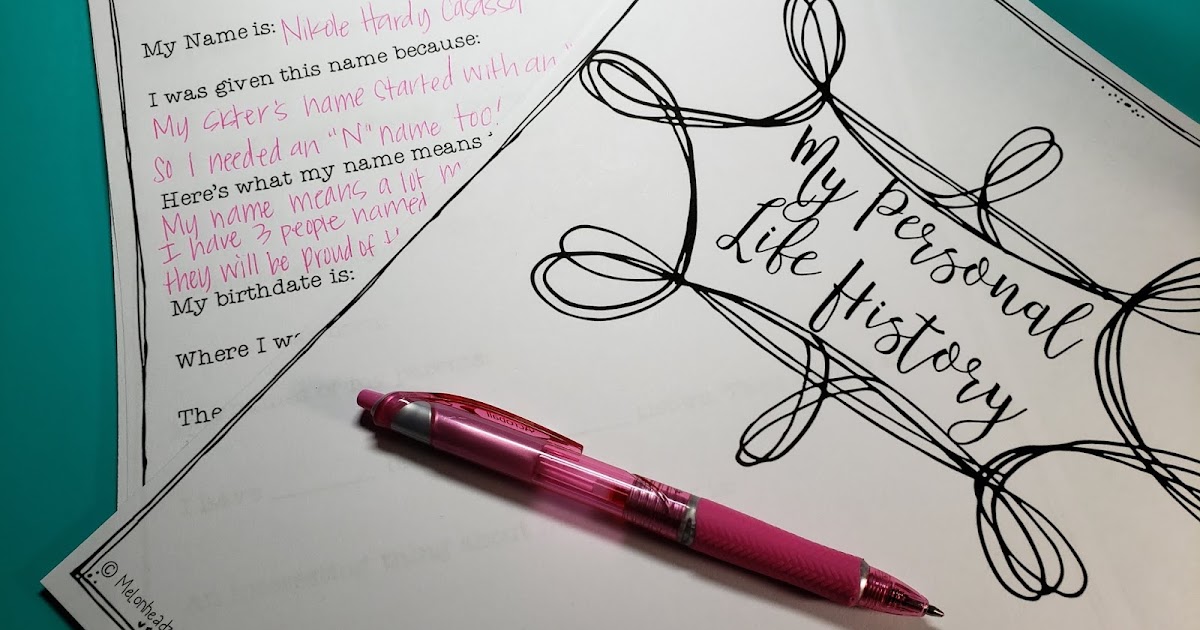 My Name is: Nikole Hardy Casassa
I was given this name because:
My sister's name started with an "
so I needed an "N" name too!
Here's what my name means
My name means a lot
I have 3 people named
they will be proud of
My birthdate is:
Where I
The
My Personal
Life History
© Melonheadz